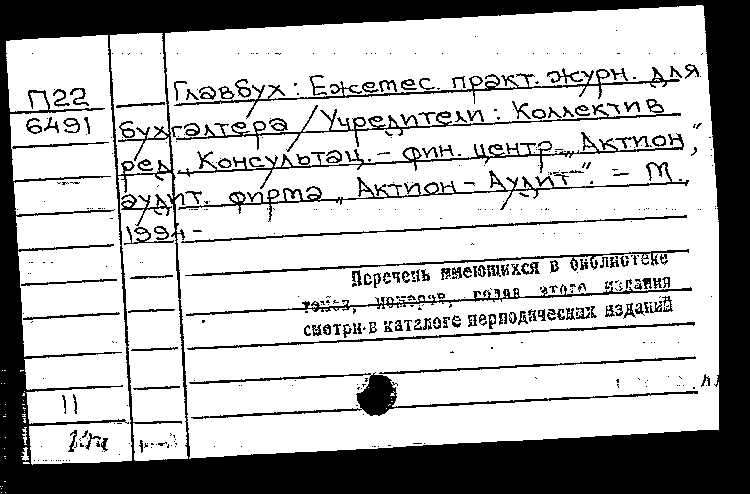 П22
6491
Главбух: Ежемес. практ. журн. для
бухгалтера / Учредители: Коллектив
ред., Консультац. - фин. центр „Актион",
аудит. фирма „Актион - Аудит". - М.,
1994 -
Перечень имеющихся в библиотеке
томов, номеров, годов этого издания
смотри в каталоге периодических изданий
11